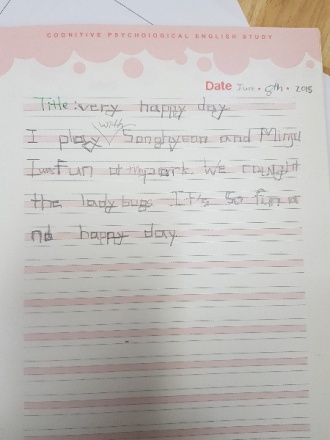 COGNITIVE PSYCHOLOGICAL ENGLISH STUDY
Date June. 8th. 2015
Title: very happy day
with
I play Songhyeon and Minju
fun at park We caught
the ladybugs It's so fun a
nd happy day